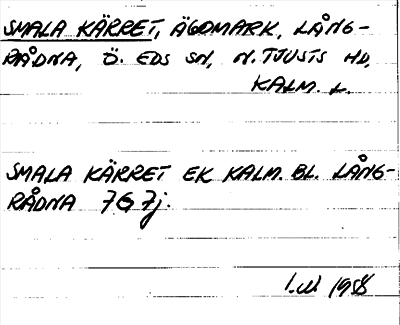 SMALA KÄRRET, ÄGOMARK, LÅNG-
RÅDNA, Ö. EDS SN, N. TJUSTS HD,
KALM. L.
SMALA KÄRRET EK KALM. BL. LÅNG-
RÅDNA 7G7j.
1958